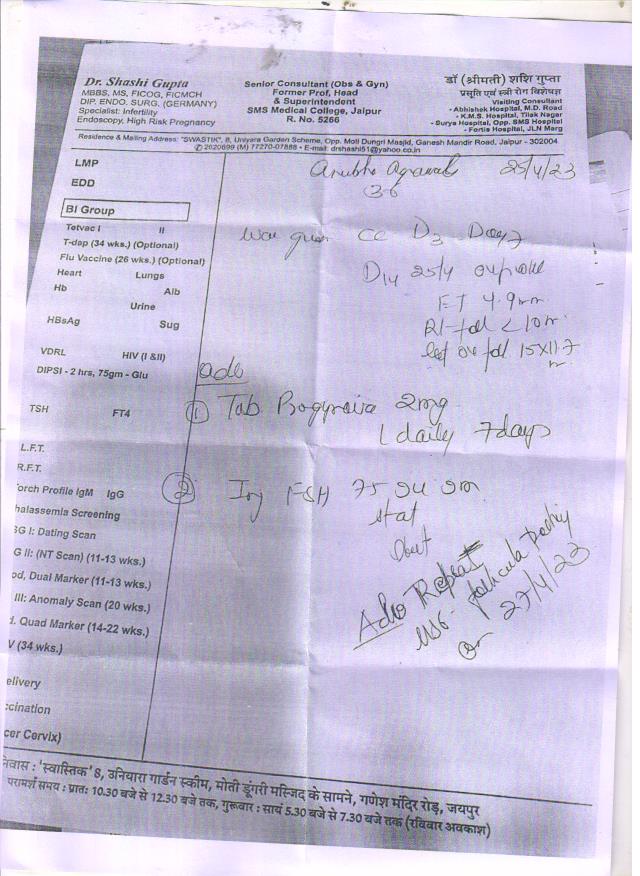 Dr. Shashi Gupta
MBBS, MS, FICOG, FICMCH
DIP. ENDO. SURG. (GERMANY)
Specialist: Infertility
Endoscopy, High Risk Pregnancy
Senior Consultant (Obs & Gyn)
Former Prof, Head
& Superintendent
SMS Medical College, Jaipur
R. No. 5266
डॉ (श्रीमती) शशि गुप्ता
प्रसूति एवं स्त्री रोग विशेषज्ञ
Visiting Consultant
- Abhishek Hospital, M.D. Road
- K.M.S. Hospital, Tilak Nagar
- Surya Hospital, Opp. SMS Hospital
- Fortis Hospital, JLN Marg
Residence & Mailing Address: "SWASTIK", 8, Uniyara Garden Scheme, Opp. Moti Dungri Masjid, Ganesh Mandir Road, Jaipur - 302004
✆ 2620699 (M) 77270-07888 • E-mail: drshashi51@yahoo.co.in
25/4/23
36
LMP
EDD
Bl Group
Tetvac I II
T-dap (34 wks.) (Optional)
Flu Vaccine (26 wks.) (Optional)
Heart Lungs
Hb Alb
Urine
HBsAg Sug
VDRL HIV (I &II)
DIPSI - 2 hrs, 75gm - Glu
TSH FT4
L.F.T.
R.F.T.
orch Profile IgM IgG
halassemia Screening
SG I: Dating Scan
G II: (NT Scan) (11-13 wks.)
od, Dual Marker (11-13 wks.)
III: Anomaly Scan (20 wks.)
d. Quad Marker (14-22 wks.)
V (34 wks.)
elivery
ccination
cer Cervix)
CC D3 Day 7
D14 25/4
ET 4.9mm
<10 m
15x11.7
m
adv
① Tab 2mg
1 daily 7days
② Inj FSH 75
stat
Adv Repeat
USG
on 27/4/23
निवास : 'स्वास्तिक' 8, उनियारा गार्डन स्कीम, मोती डूंगरी मस्जिद के सामने, गणेश मंदिर रोड़, जयपुर
परामर्श समय : प्रातः 10.30 बजे से 12.30 बजे तक, गुरूवार : सायं 5.30 बजे से 7.30 बजे तक (रविवार अवकाश)